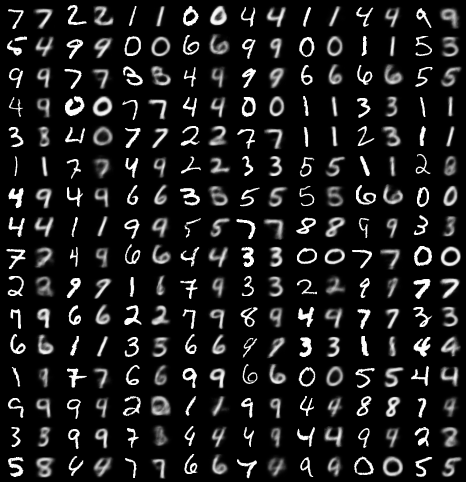 7 7 2 2 1 1 0 0 4 4 1 1 4 4 9 9
5 4 9 9 0 0 6 6 9 9 0 0 1 1 5 3
9 9 7 7 3 3 4 4 9 9 6 6 6 6 5 5
4 9 0 0 7 7 4 4 0 0 1 1 3 3 1 1
3 8 4 0 7 7 2 2 7 7 1 1 2 3 1 1
1 1 7 7 4 9 2 2 3 3 5 5 1 1 2 8
4 9 4 9 6 6 3 5 5 5 5 5 6 6 0 0
4 4 1 1 9 9 5 5 7 7 8 8 9 9 3 3
7 7 4 9 6 6 4 4 3 3 0 0 7 7 0 0
2 2 9 9 1 6 7 9 3 3 2 2 9 9 7 7
7 9 6 6 2 2 7 9 8 9 4 4 7 7 3 3
6 6 1 1 3 5 6 6 9 9 3 3 1 1 4 4
1 9 7 7 6 6 9 9 6 6 0 0 5 5 4 4
9 9 9 9 2 1 1 9 9 4 4 8 8 7 9
3 3 9 9 7 8 4 4 4 9 4 4 9 4 2 8
5 8 4 4 7 7 6 6 7 4 9 9 0 0 5 5